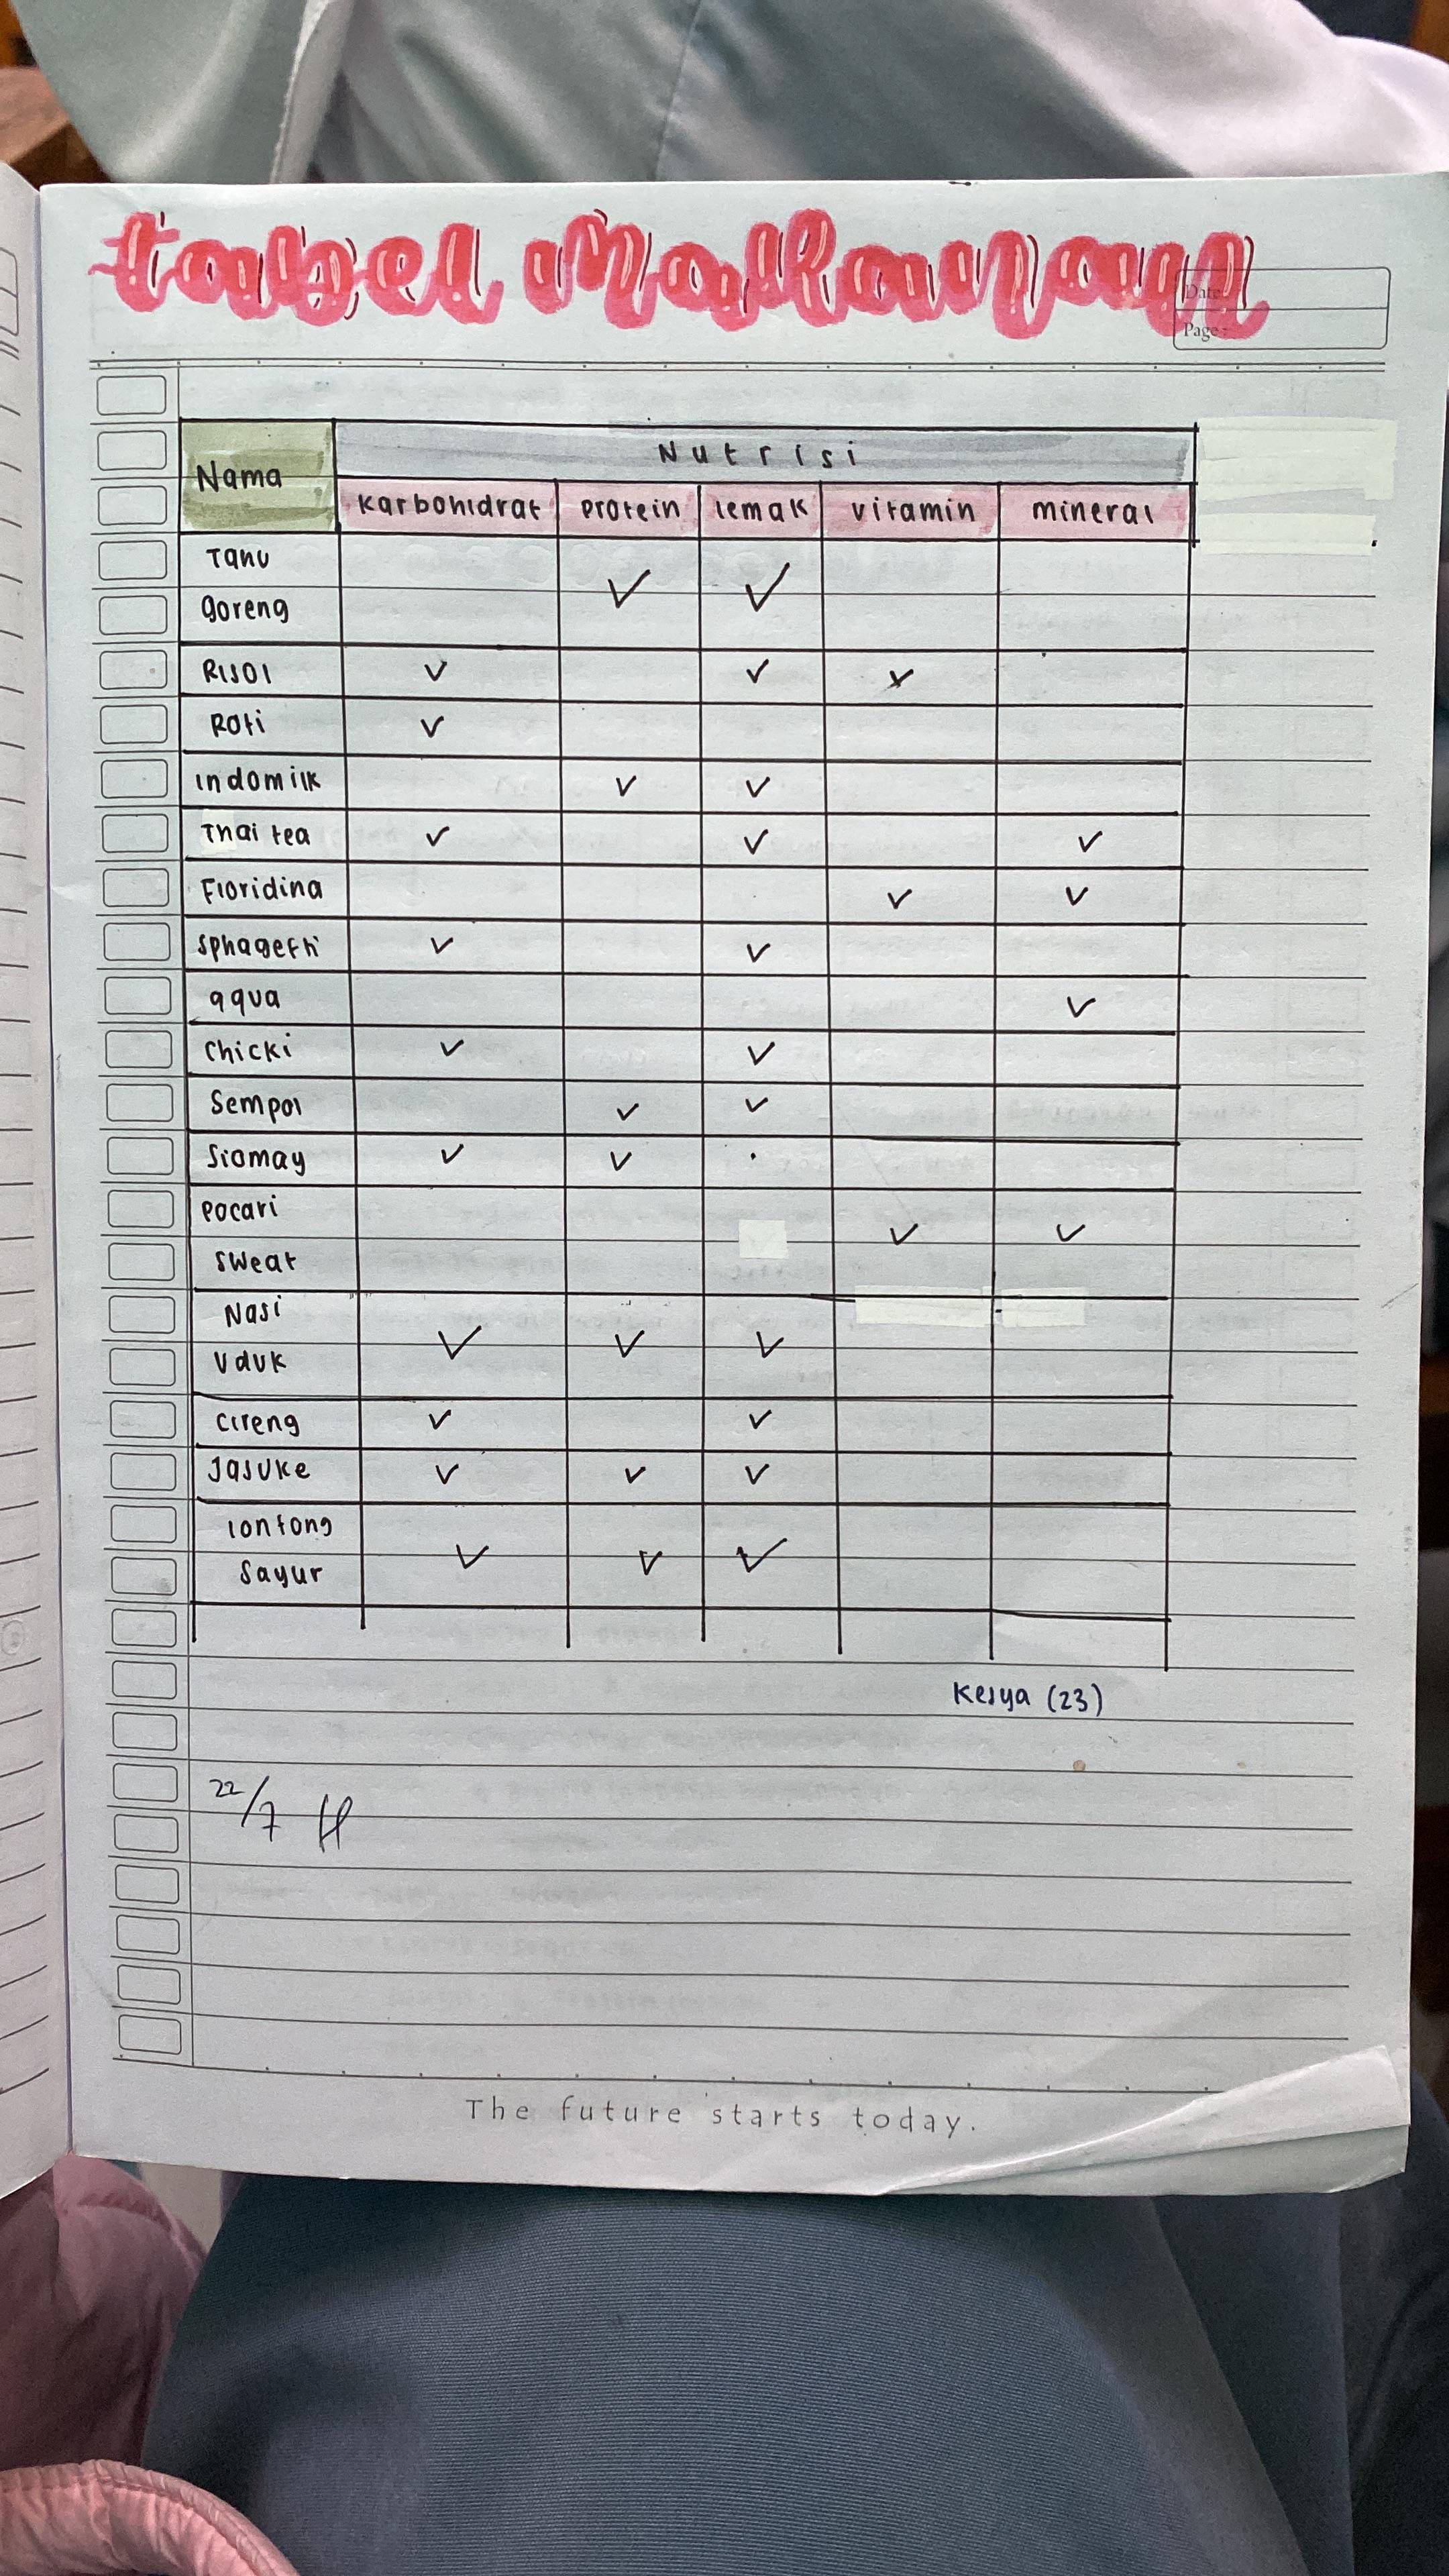 tabel Makanan
Date
Page
Nama
Nutrisi
karbohidrat protein lemak vitamin mineral
Tahu
goreng ✓ ✓
Risol ✓ ✓ ✓
Roti ✓
indomilk ✓ ✓
Thai tea ✓ ✓ ✓
Floridina ✓ ✓
sphagetti ✓ ✓
aqua ✓
Chicki ✓ ✓
Sempol ✓ ✓
Siomay ✓ ✓
Pocari
sweat ✓ ✓
Nasi
Uduk ✓ ✓ ✓
cireng ✓ ✓
Jasuke ✓ ✓ ✓
lontong
Sayur ✓ ✓ ✓
Kesya (23)
22/7
The future starts today.